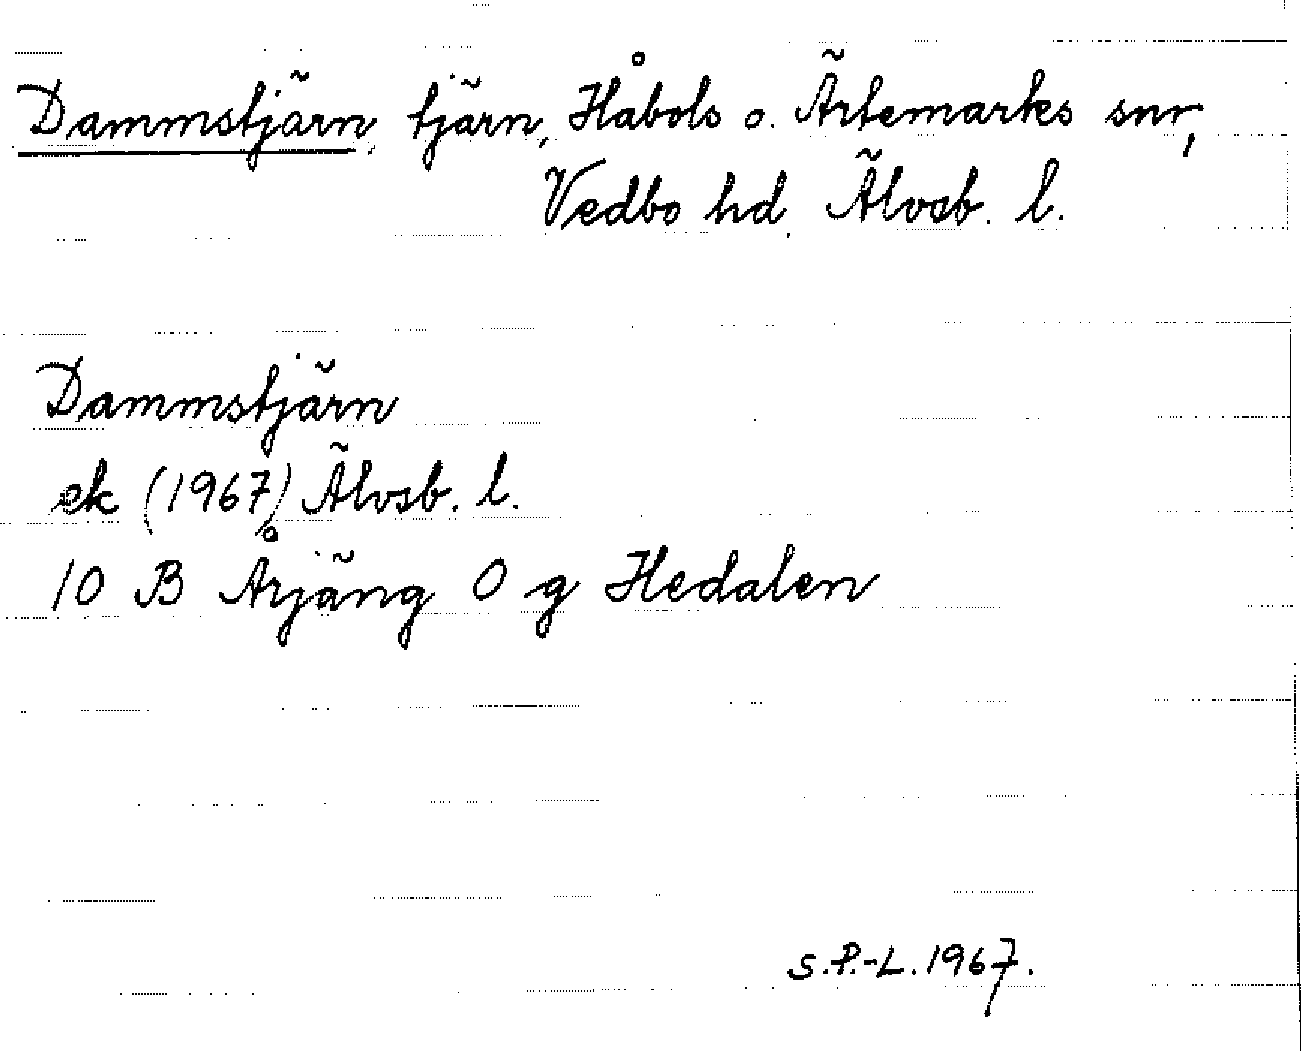 Dammstjärn, tjärn, Håbols o. Ärtemarks snr,
Vedbo hd, Älvsb. l.
Dammstjärn
ek (1967) Älvsb. l.
10 B Årjäng 0 g Hedalen
S.P.-L. 1967.